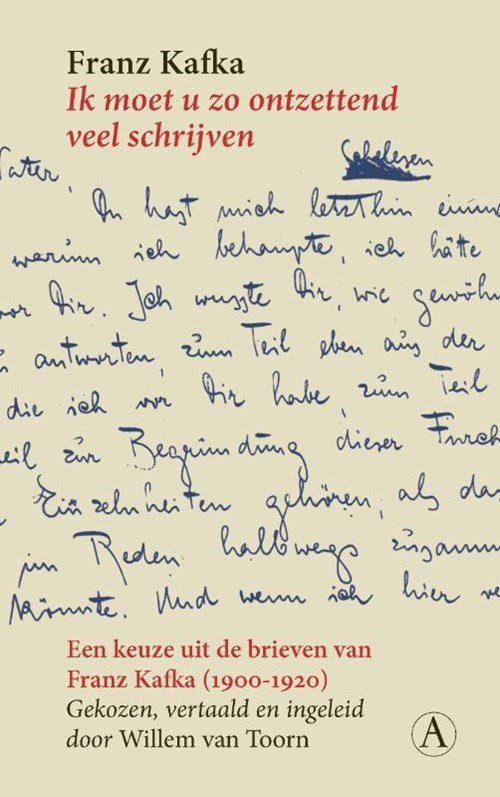 Franz Kafka
Ik moet u zo ontzettend
veel schrijven
Vater,
Schelesen
Du hast mich letzthin einma
warum ich behaupte, ich hätte
vor Dir. Ich wusste Dir, wie gewöhn
antworten, zum Teil eben aus der
die ich vor Dir habe, zum Teil
weil zur Begründung dieser Furch
Einzelnheiten gehören, als da
im Reden halbwegs zusamm
könnte. Und wenn ich hier ve
Een keuze uit de brieven van
Franz Kafka (1900-1920)
Gekozen, vertaald en ingeleid
door Willem van Toorn
A